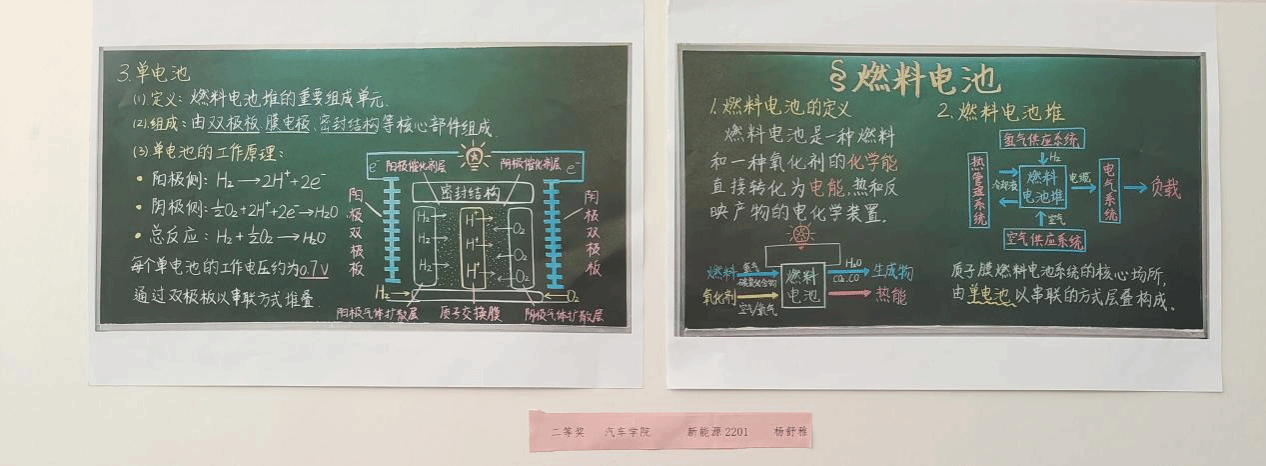 3.单电池
(1).定义：燃料电池堆的重要组成单元.
(2).组成：由双极板、膜电极、密封结构等核心部件组成.
(3).单电池的工作原理：
• 阳极侧：H₂→2H⁺+2e⁻
• 阴极侧：½O₂+2H⁺+2e⁻→H₂O
• 总反应：H₂+½O₂→H₂O
每个单电池的工作电压约为0.7V
通过双极板以串联方式堆叠
e⁻ 阳极催化剂层
阴极催化剂层 e⁻
密封结构
阳极双极板
阴极双极板
H₂ H⁺ O₂
H₂ H⁺ O₂
H₂ H⁺ O₂
H₂
O₂
阳极气体扩散层 质子交换膜 阴极气体扩散层
§燃料电池
1.燃料电池的定义
燃料电池是一种燃料
和一种氧化剂的化学能
直接转化为电能,热和反
映产物的电化学装置.
燃料 氢气
碳氢化合物
氧化剂
空气/氧气
燃料
电池
H₂O
CO₂.CO
生成物
热能
2.燃料电池堆
氢气供应系统
H₂
热管理系统
冷却液
燃料
电池堆
电缆
电气系统
负载
空气
空气供应系统
质子膜燃料电池系统的核心场所,
由单电池以串联的方式层叠构成.
二等奖 汽车学院 新能源2201 杨舒雅